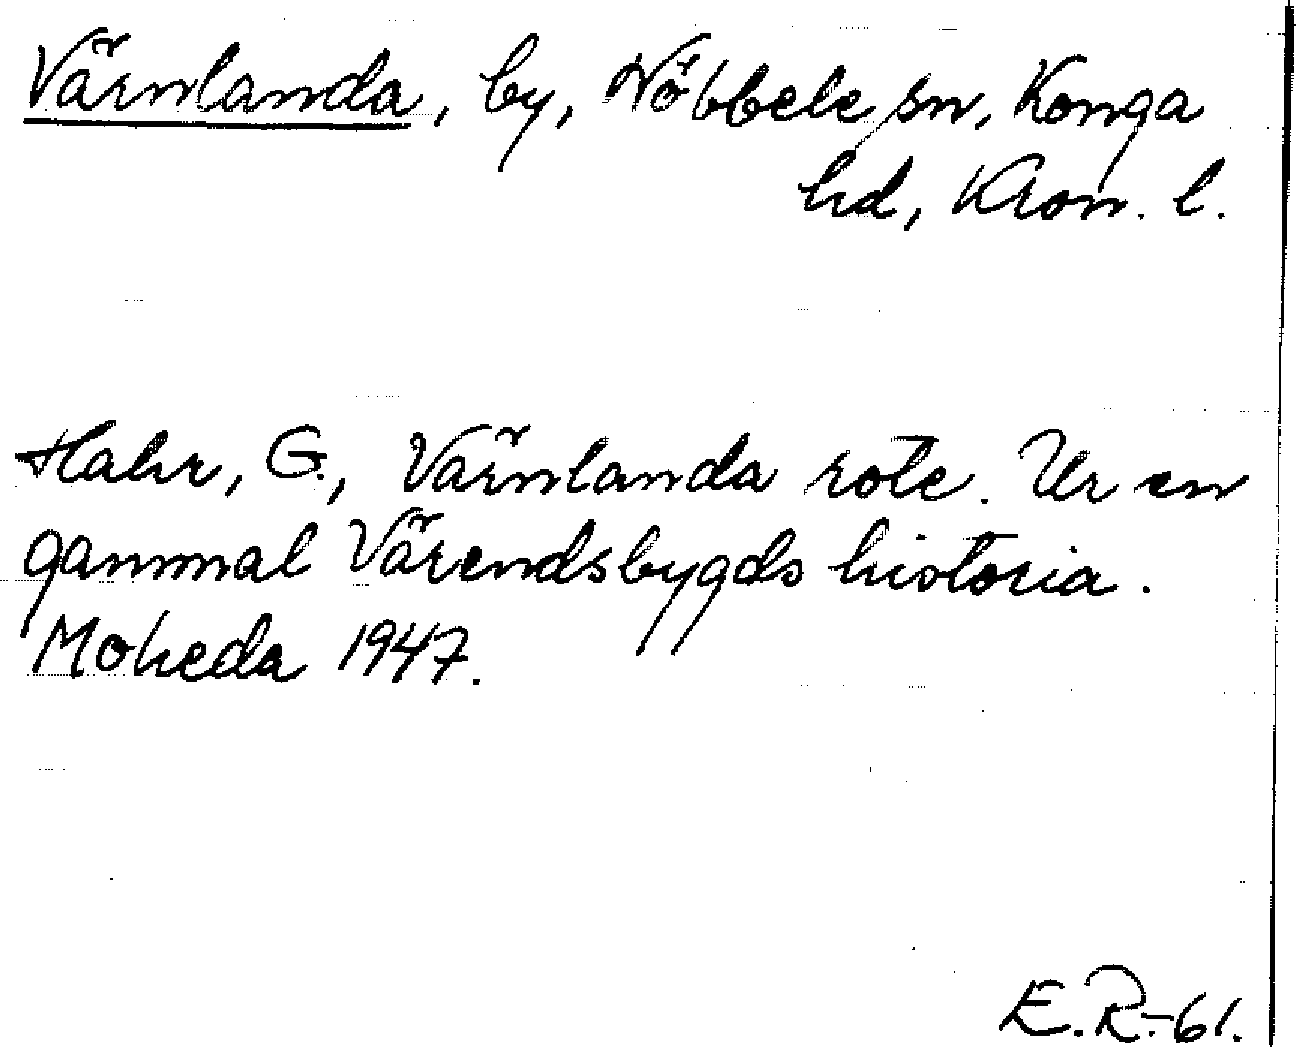 Värnlanda, by, Nöbbele sn, Konga
hd, Kron. l.
Hahr, G., Värnlanda rote. Ur en
gammal Värendsbygds historia.
Moheda 1947.
E.R.-61.